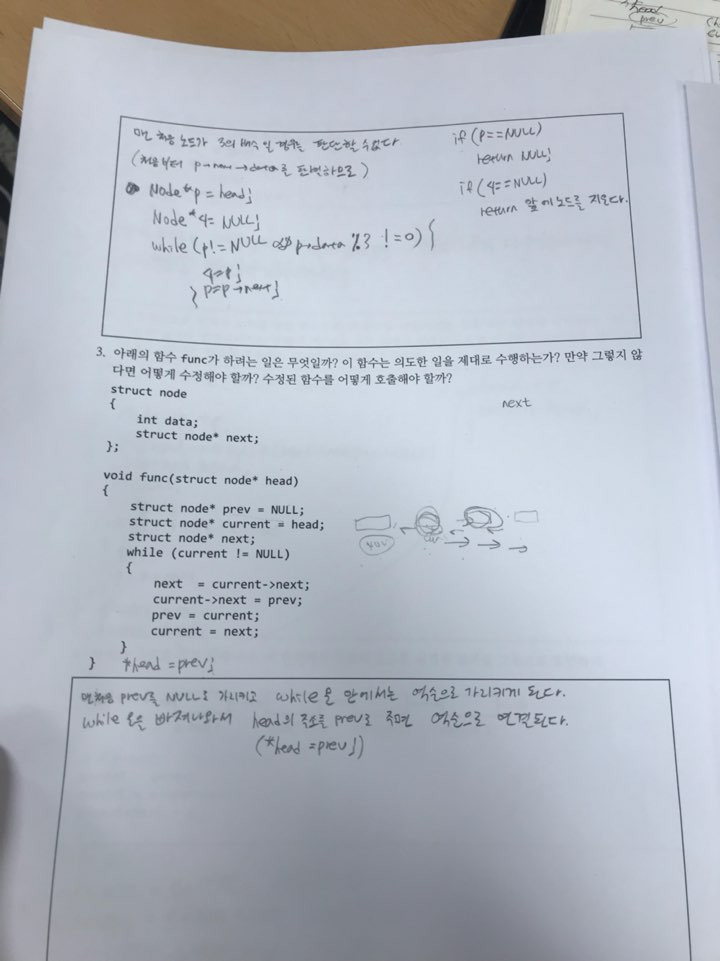 head
prev
맨 처음 노드가 3의 배수 일 경우는 판단할 수 없다.
(처음부터 p→next→data를 판별하므로)
Node *p = head;
Node *q = NULL;
while (p != NULL && p→data % 3 != 0) {
q=p;
} p=p→next;
if (p==NULL)
return NULL;
if (q==NULL)
return 앞에 노드를 지운다.
3. 아래의 함수 func가 하려는 일은 무엇일까? 이 함수는 의도한 일을 제대로 수행하는가? 만약 그렇지 않
다면 어떻게 수정해야 할까? 수정된 함수를 어떻게 호출해야 할까?
struct node
next
{
int data;
struct node* next;
};
void func(struct node* head)
{
struct node* prev = NULL;
struct node* current = head;
struct node* next;
while (current != NULL)
{
next = current->next;
current->next = prev;
prev = current;
current = next;
}
} *head = prev;
맨처음 prev를 NULL로 가리키고 while문 안에서는 역순으로 가리키게 된다.
while문을 빠져나와서 head의 주소를 prev로 주면 역순으로 연결된다.
(*head = prev;)